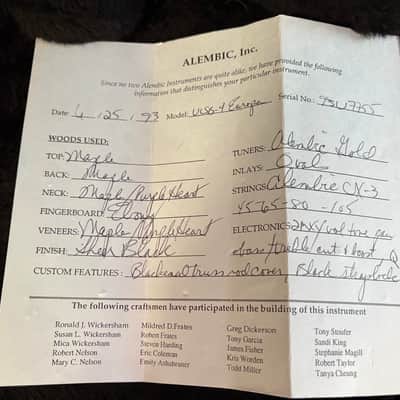 ALEMBIC, Inc.
Since no two Alembic Instruments are quite alike, we have provided the following
information that distinguishes your particular instrument.
Date: 4 . 25 . 93 Model: Europa Serial No.:
WOODS USED:
TOP: Maple
BACK: Maple
NECK: Maple/PurpleHeart
FINGERBOARD: Ebony
VENEERS: Maple/PurpleHeart
FINISH: Sheer Black
TUNERS: Alembic Gold
INLAYS: Oval
STRINGS: Alembic CX-3
45-65-80-105
ELECTRONICS: vol tone pan
bass/treble/cut & boost, Q
CUSTOM FEATURES: Black truss rod cover, Black straplocks
The following craftsmen have participated in the building of this instrument
Ronald J. Wickersham
Susan L. Wickersham
Mica Wickersham
Robert Nelson
Mary C. Nelson
Mildred D. Frates
Robert Frates
Steven Harding
Eric Coleman
Emily
Greg Dickerson
Tony Garcia
James Fisher
Kris Worden
Todd Miller
Tony Stuufer
Sandi King
Stephanie Magill
Robert Taylor
Tanya Cheung